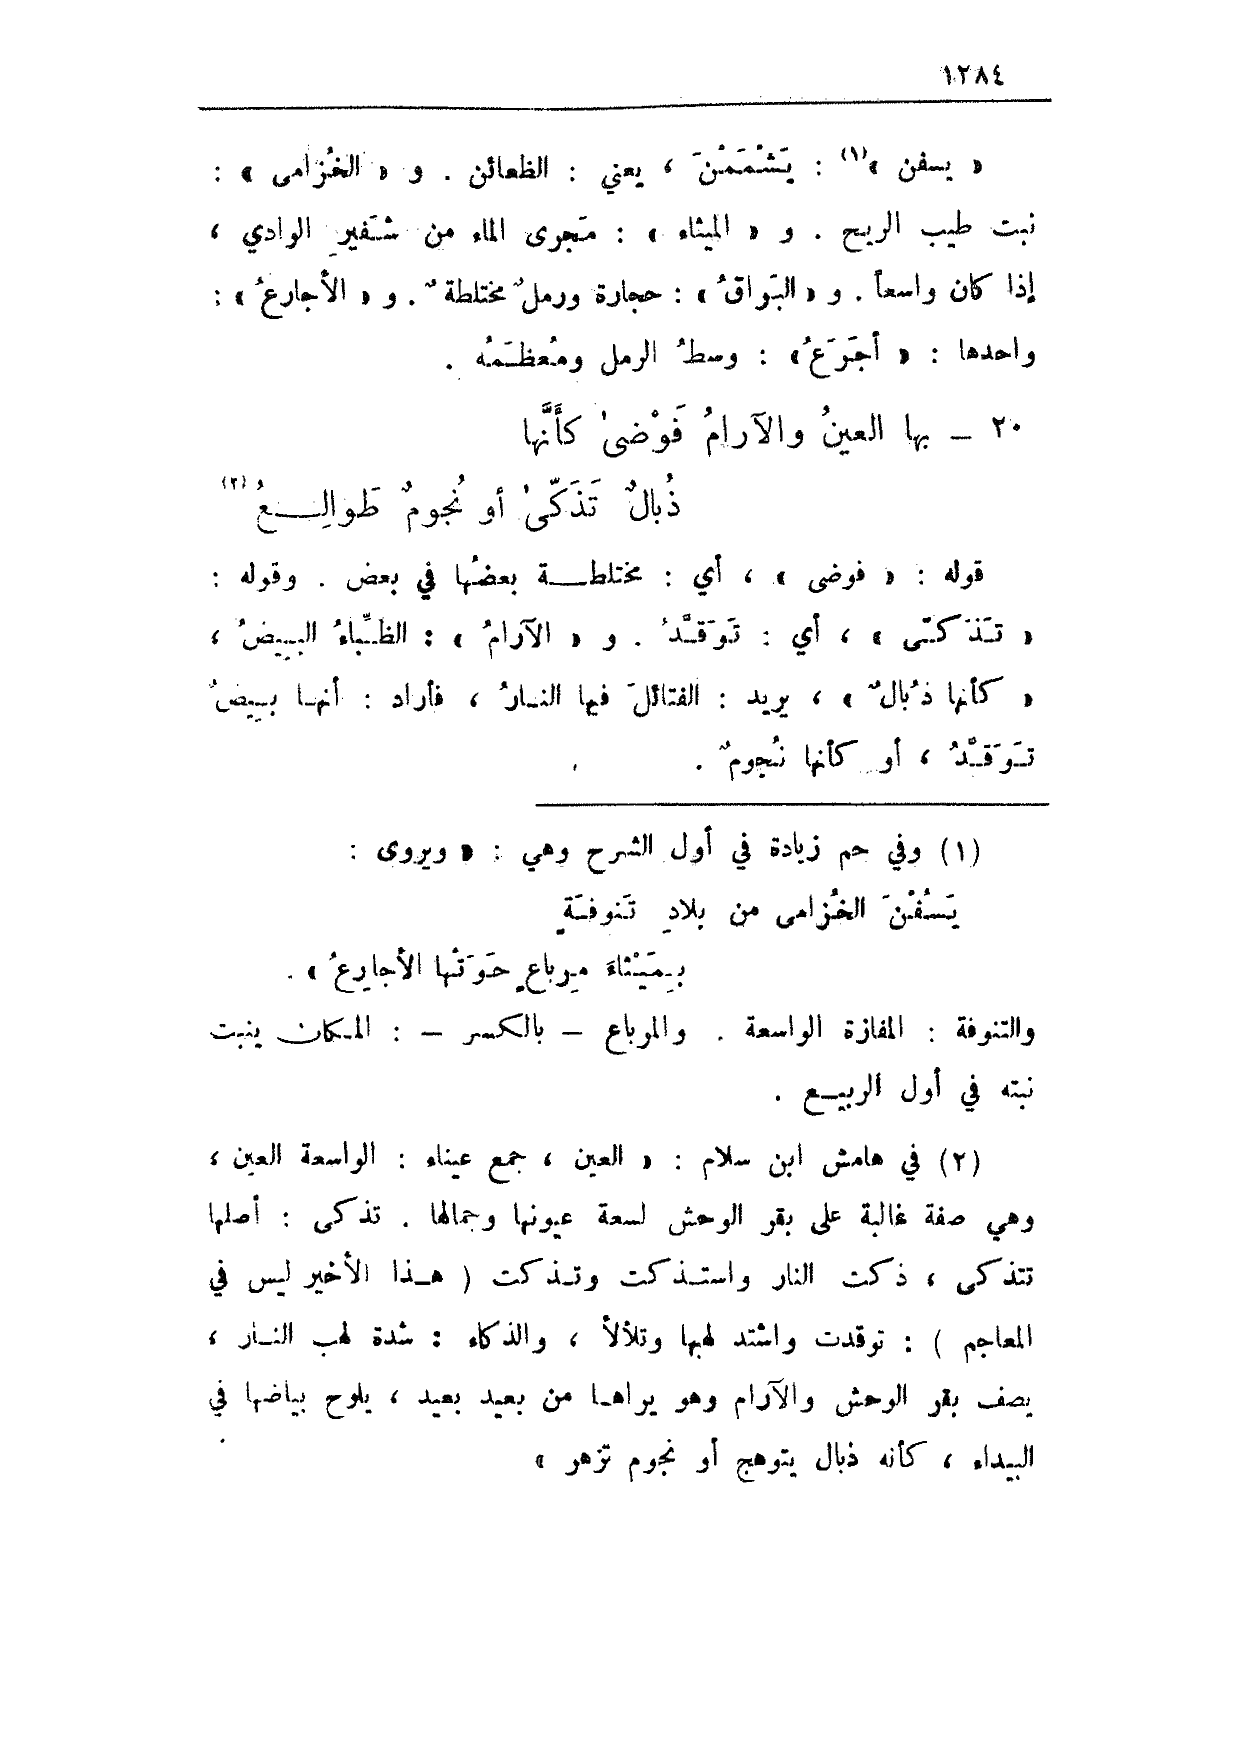 ١٢٨٤
« يسفن »(١) : يَشْمَمْنَ ، يعني : الظعائن . و « الخُزامى » :
نبت طيب الريح . و « الميثاء » : مَجرى الماء من شَفيرِ الوادي ،
إذا كان واسعاً . و « البَراقُ » : حجارة ورملٌ مختلطةٌ . و « الأجارعُ » :
واحدها : « أجرَعُ » : وسطُ الرمل ومُعظَمُه .
٢٠ – بها العينُ والآرامُ فَوْضىٰ كأَنَّها
ذُبالٌ تَذَكّىٰ أو نُجومٌ طَوالِعُ(٢)
قوله : « فوضى » ، أي : مختلطة بعضُها في بعض . وقوله :
« تَذَكّى » ، أي : تَوَقَّدُ . و « الآرامُ » : الظِّباءُ البِيضُ ،
« كأنها ذُبالٌ » ، يريد : الفتائلَ فيها النارُ ، فأراد : أنها بِيضٌ
تَوَقَّدُ ، أو كأنها نُجومٌ .
(١) وفي حم زيادة في أول الشرح وهي : « ويروى :
يَسُفْنَ الخُزامى من بلادِ تَنوفَةٍ
بِمَيْثاءَ مِرباعٍ حَوَتْها الأجارِعُ » .
والتنوفة : المفازة الواسعة . والمرباع – بالكسر – : المكان ينبت
نبته في أول الربيع .
(٢) في هامش ابن سلام : « العين ، جمع عيناء : الواسعة العين ،
وهي صفة غالبة على بقر الوحش لسعة عيونها وجمالها . تذكى : أصلها
تتذكى ، ذكت النار واستذكت وتذكت ( هذا الأخير ليس في
المعاجم ) : توقدت واشتد لهبها وتلألأ ، والذكاء : شدة لهب النار ،
يصف بقر الوحش والآرام وهو يراها من بعيد بعيد ، يلوح بياضها في
البيداء ، كأنه ذبال يتوهج أو نجوم تزهر »